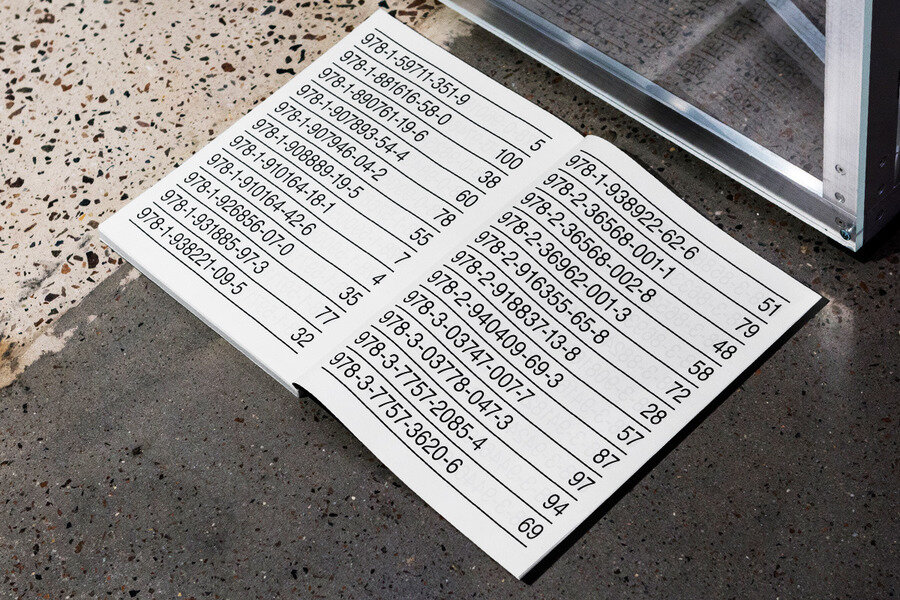 978-1-59711-351-9 5
978-1-881616-58-0 100
978-1-890761-19-6 38
978-1-907893-54-4 60
978-1-907946-04-2 78
978-1-908889-19-5 55
978-1-910164-18-1 7
978-1-910164-42-6 4
978-1-926856-07-0 35
978-1-931885-97-3 77
978-1-938221-09-5 32
978-1-938922-62-6 51
978-2-36568-001-1 79
978-2-36568-002-8 48
978-2-36962-001-3 58
978-2-916355-65-8 72
978-2-918837-13-8 28
978-2-940409-69-3 57
978-3-03747-007-7 87
978-3-03778-047-3 97
978-3-7757-2085-4 94
978-3-7757-3620-6 69